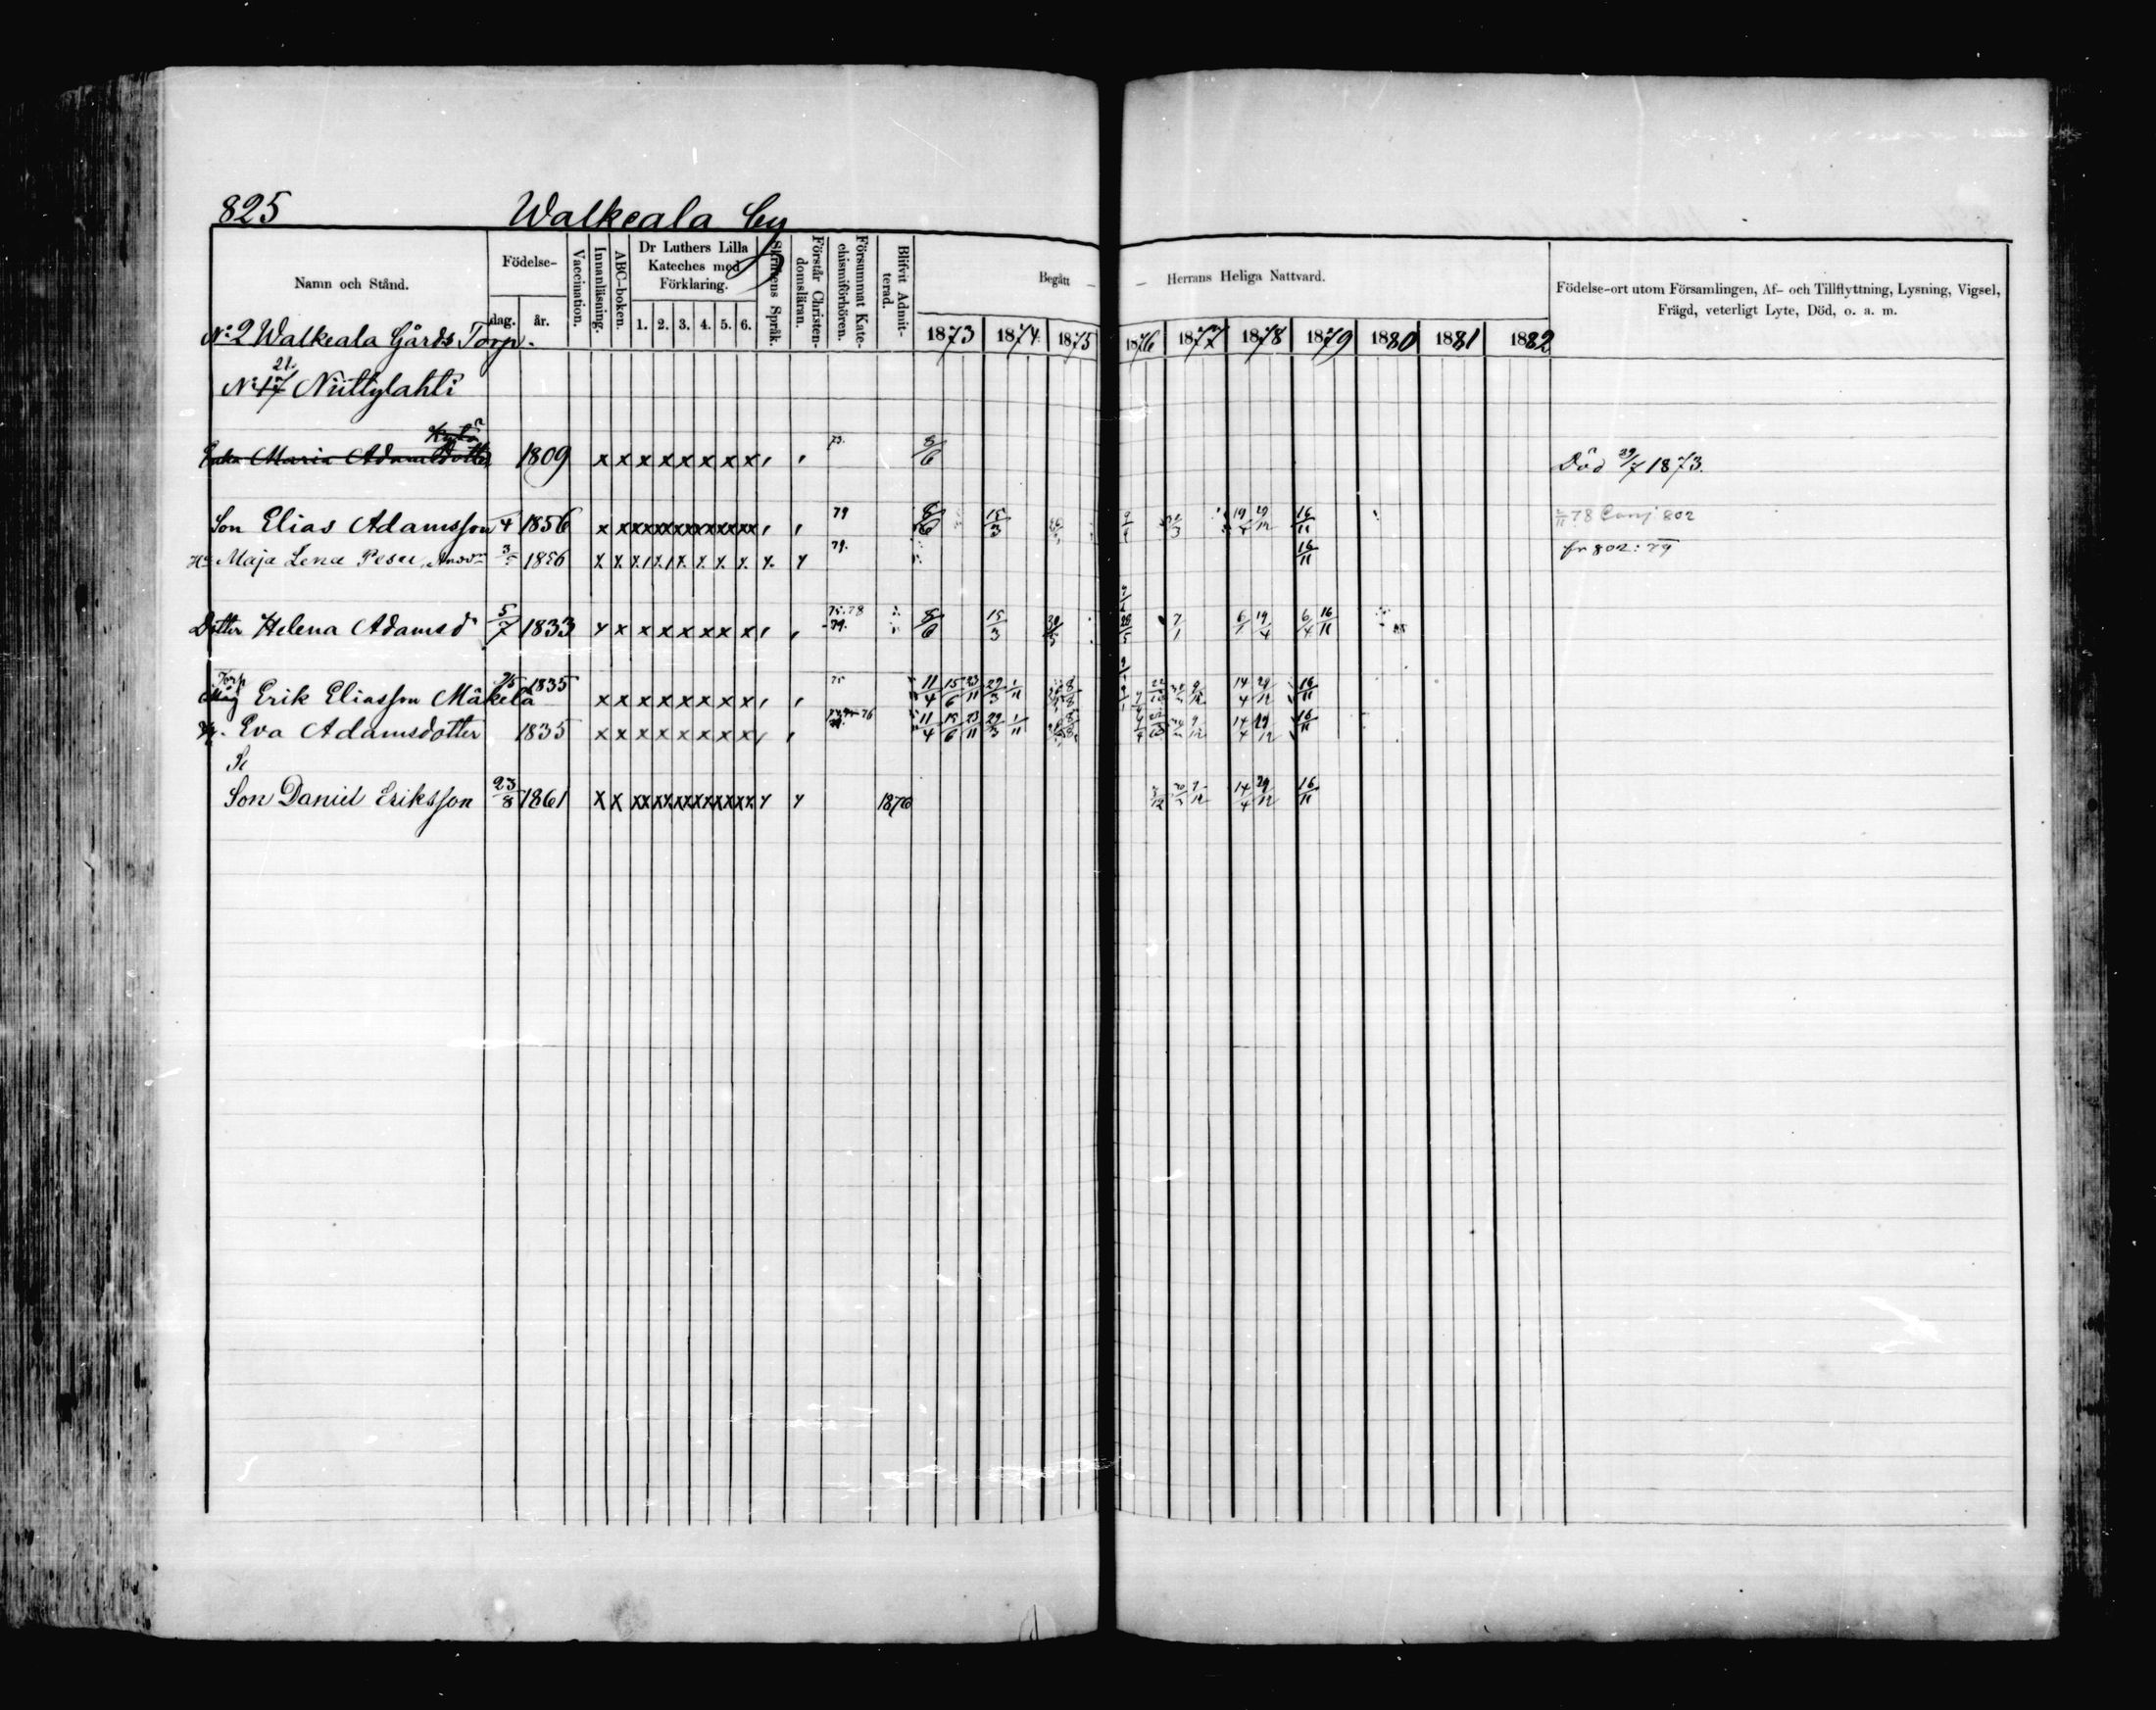 825 Walkeala by
Namn och Stånd. Födelse- dag. år. Vaccination. Innanläsning. ABC-boken. Dr Luthers Lilla Kateches med Förklaring. 1. 2. 3. 4. 5. 6. Skriftens Språk. Förstår Christendomsläran. Försummat Katechismiförhören. Blifvit Admitterad. Begått — — Herrans Heliga Nattvard. Födelse-ort utom Församlingen, Af- och Tillflyttning, Lysning, Vigsel, Frägd, veterligt Lyte, Död, o. a. m.
1873 1874 1875 1876 1877 1878 1879 1880 1881 1882
No 2 Walkeala Gårds Torp.
21.
No 17 Niittylahti
Enka Maria Adamsdotter 1809 x x x x x x x x 73. 8/6 Död 29/7 1873.
Son Elias Adamsson 4 1856 x x xx xx xx xx xx xx 79 8/6 15/3 19 29/12 16/11 78 802
Maja Lena Pesu 1856 x x x x x x x x x 79. 16/11 fr 802: 79
Dotter Helena Adamsd 5/7 1833 x x x x x x x x 75.78 79. 8/6 15/3 30/5 28/5 7/1 19/4 6/4 16/11
Torp
Måg Erik Eliasson Mäkelä 1835 x x x x x x x x 75 11/4 15/6 23/11 29/3 1/11 8/8 14/4 29/12 16/11
Eva Adamsdotter 1835 x x x x x x x x 76 11/4 15/6 23/11 29/3 1/11 8/8 14/4 29/12 16/11
Son Daniel Eriksson 23/8 1861 x x xx xx xx xx xx xx 1876 3/12 9/12 14/4 29/12 16/11